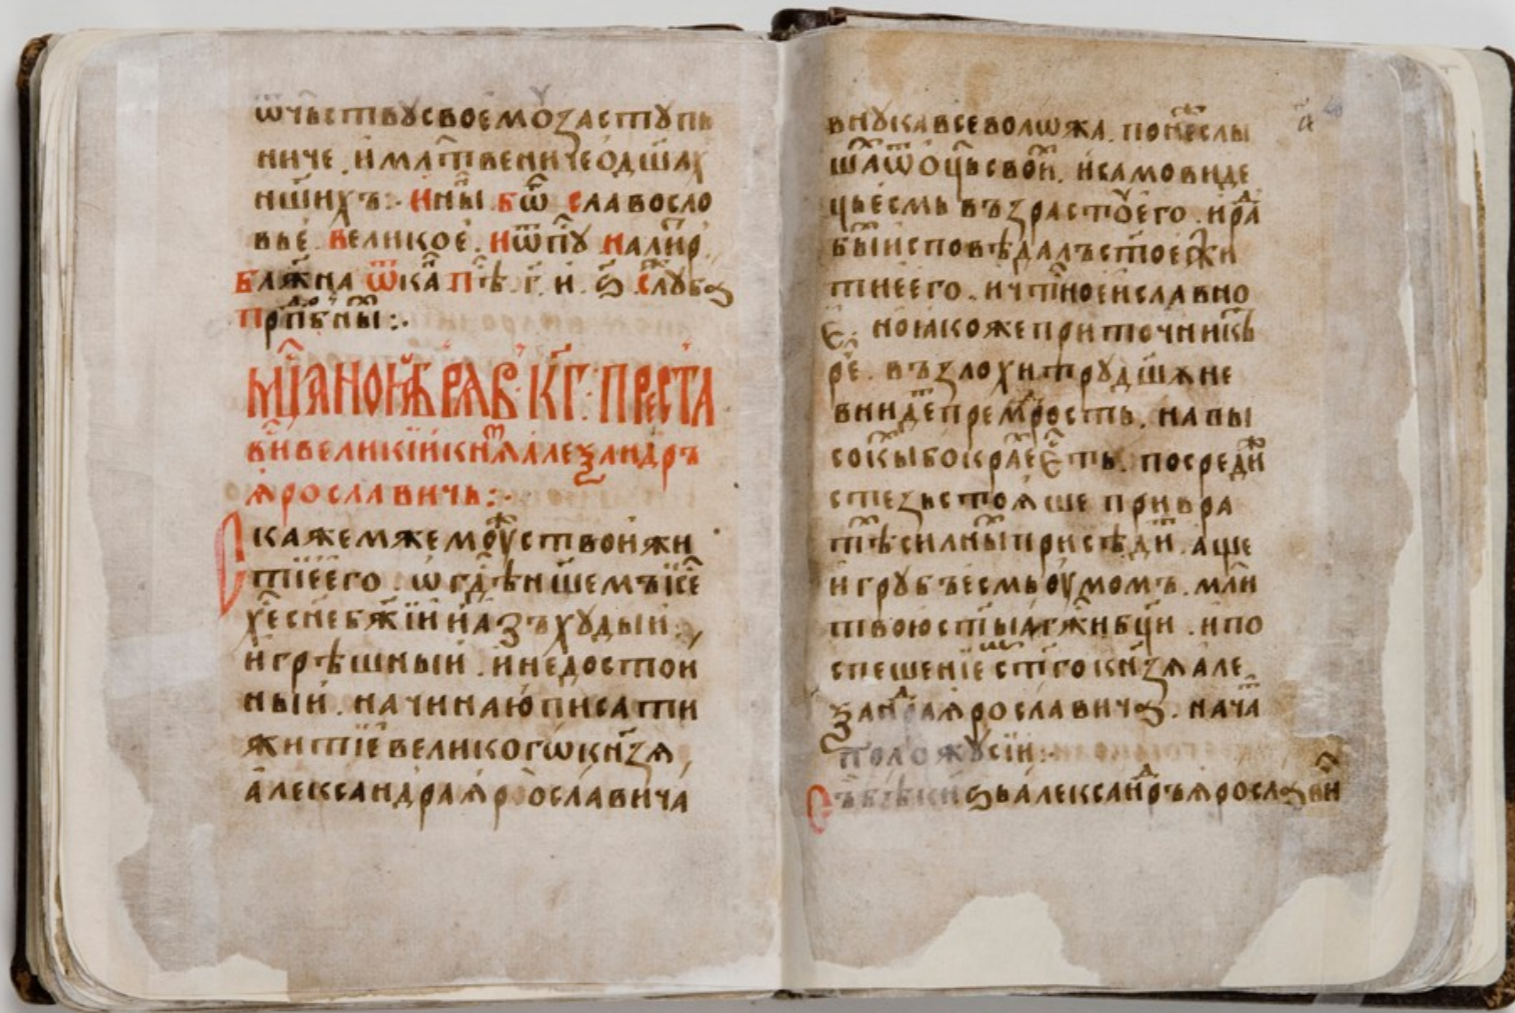 ѿчьствꙋ своемꙋ заступь
ниче . и млⷭ҇твениче одшах
ншихъ :· и нн҃ѣ бѿ славосло
вье великое . и ѿпꙋ на ли
блж҃на ѿ ка пѣ . г҃ . и . ѕ҃ . слꙋб
прⷣпбны :·
мцⷭ҇а ноꙗⷠ҇рѧ в к҃г : преста
вис великїи кн҃ѕь алеѯандръ
ꙗрославичь :·
Скажем же мꙋжьство и жи
тїе его . ѡ гдⷭ҇ѣ ншемъ іⷭ҇е
хⷭ҇е сне бж҃їи и азъ хꙋдыи
и грѣшныи . и недостои
ныи . начинаю писати
житїе великогѡ кнѧзѧ
александра ꙗрославича
внꙋка всеволѡжа . понеⷤ слы
шаⷯ ѿ оц҃ь свои . и самовиде
ць есмь възраста его . и ра
бы исповѣдалъ
тие его . и чтⷭ҇ное и славно
е . но ꙗкоже приточникъ
рече . въ злохитрꙋ дш҃ꙋ не
внидеⷮ премдрⷭ҇ость . на вы
сокы бо краеⷯ есть . посредⷤи
стезь стоꙗше при вра
тѣⷯ силныⷯ присѣдиⷮ . аще
и грꙋбъ есмь ᲂумомъ . млт҃
твою ст҃ыꙗ бц҃и . и по
спешенїе ст҃го кнѧзѧ але
ѯандра ꙗрославича . нача
положꙋ сиⷰ :·
Съ бѣ кнѕь александръ ꙗрославич